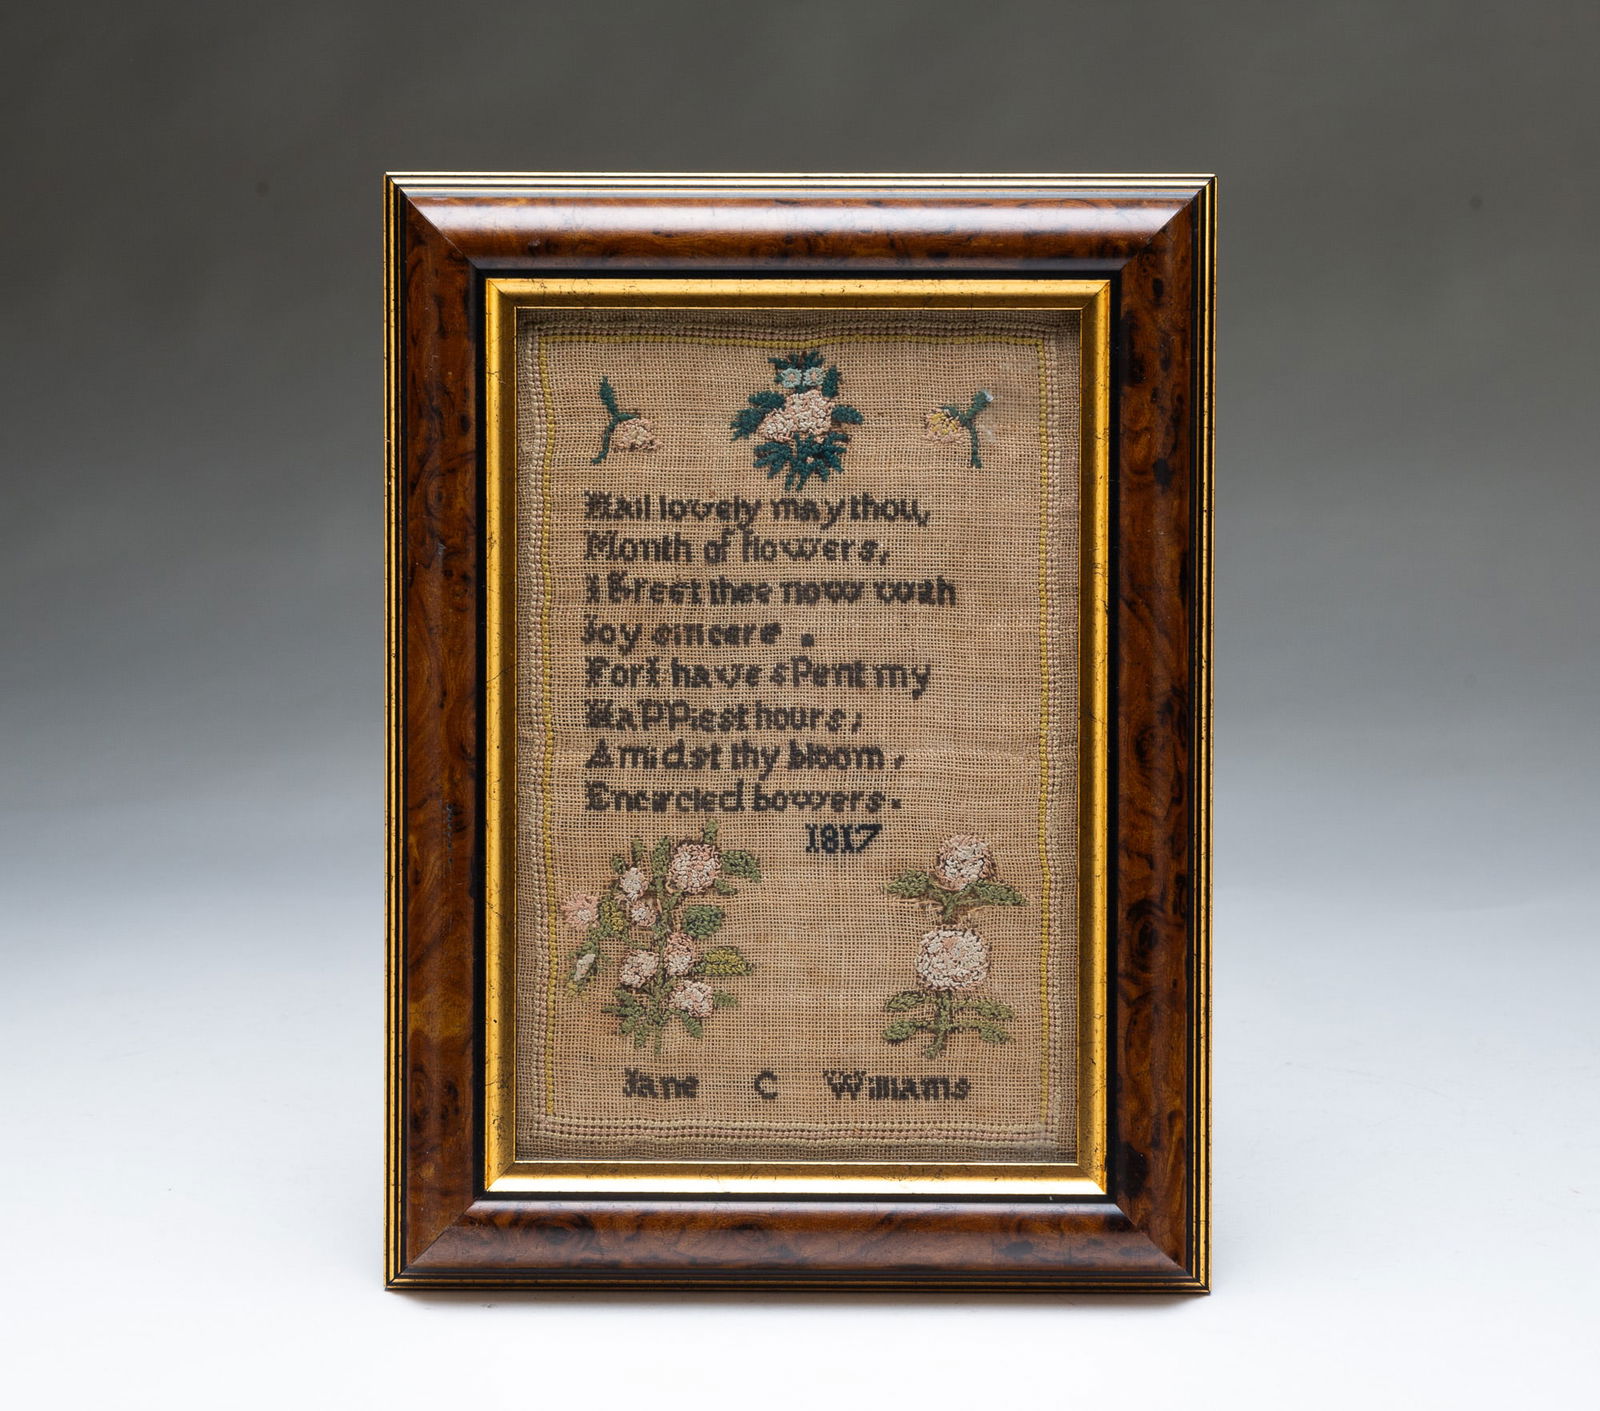 Hail lovely may thou,
Month of flowers,
I Greet thee now with
Joy sincere .
For I have sPent my
HaPPiest hours,
Amidst thy bloom,
Encircled bowers.
1817
Jane C Williams